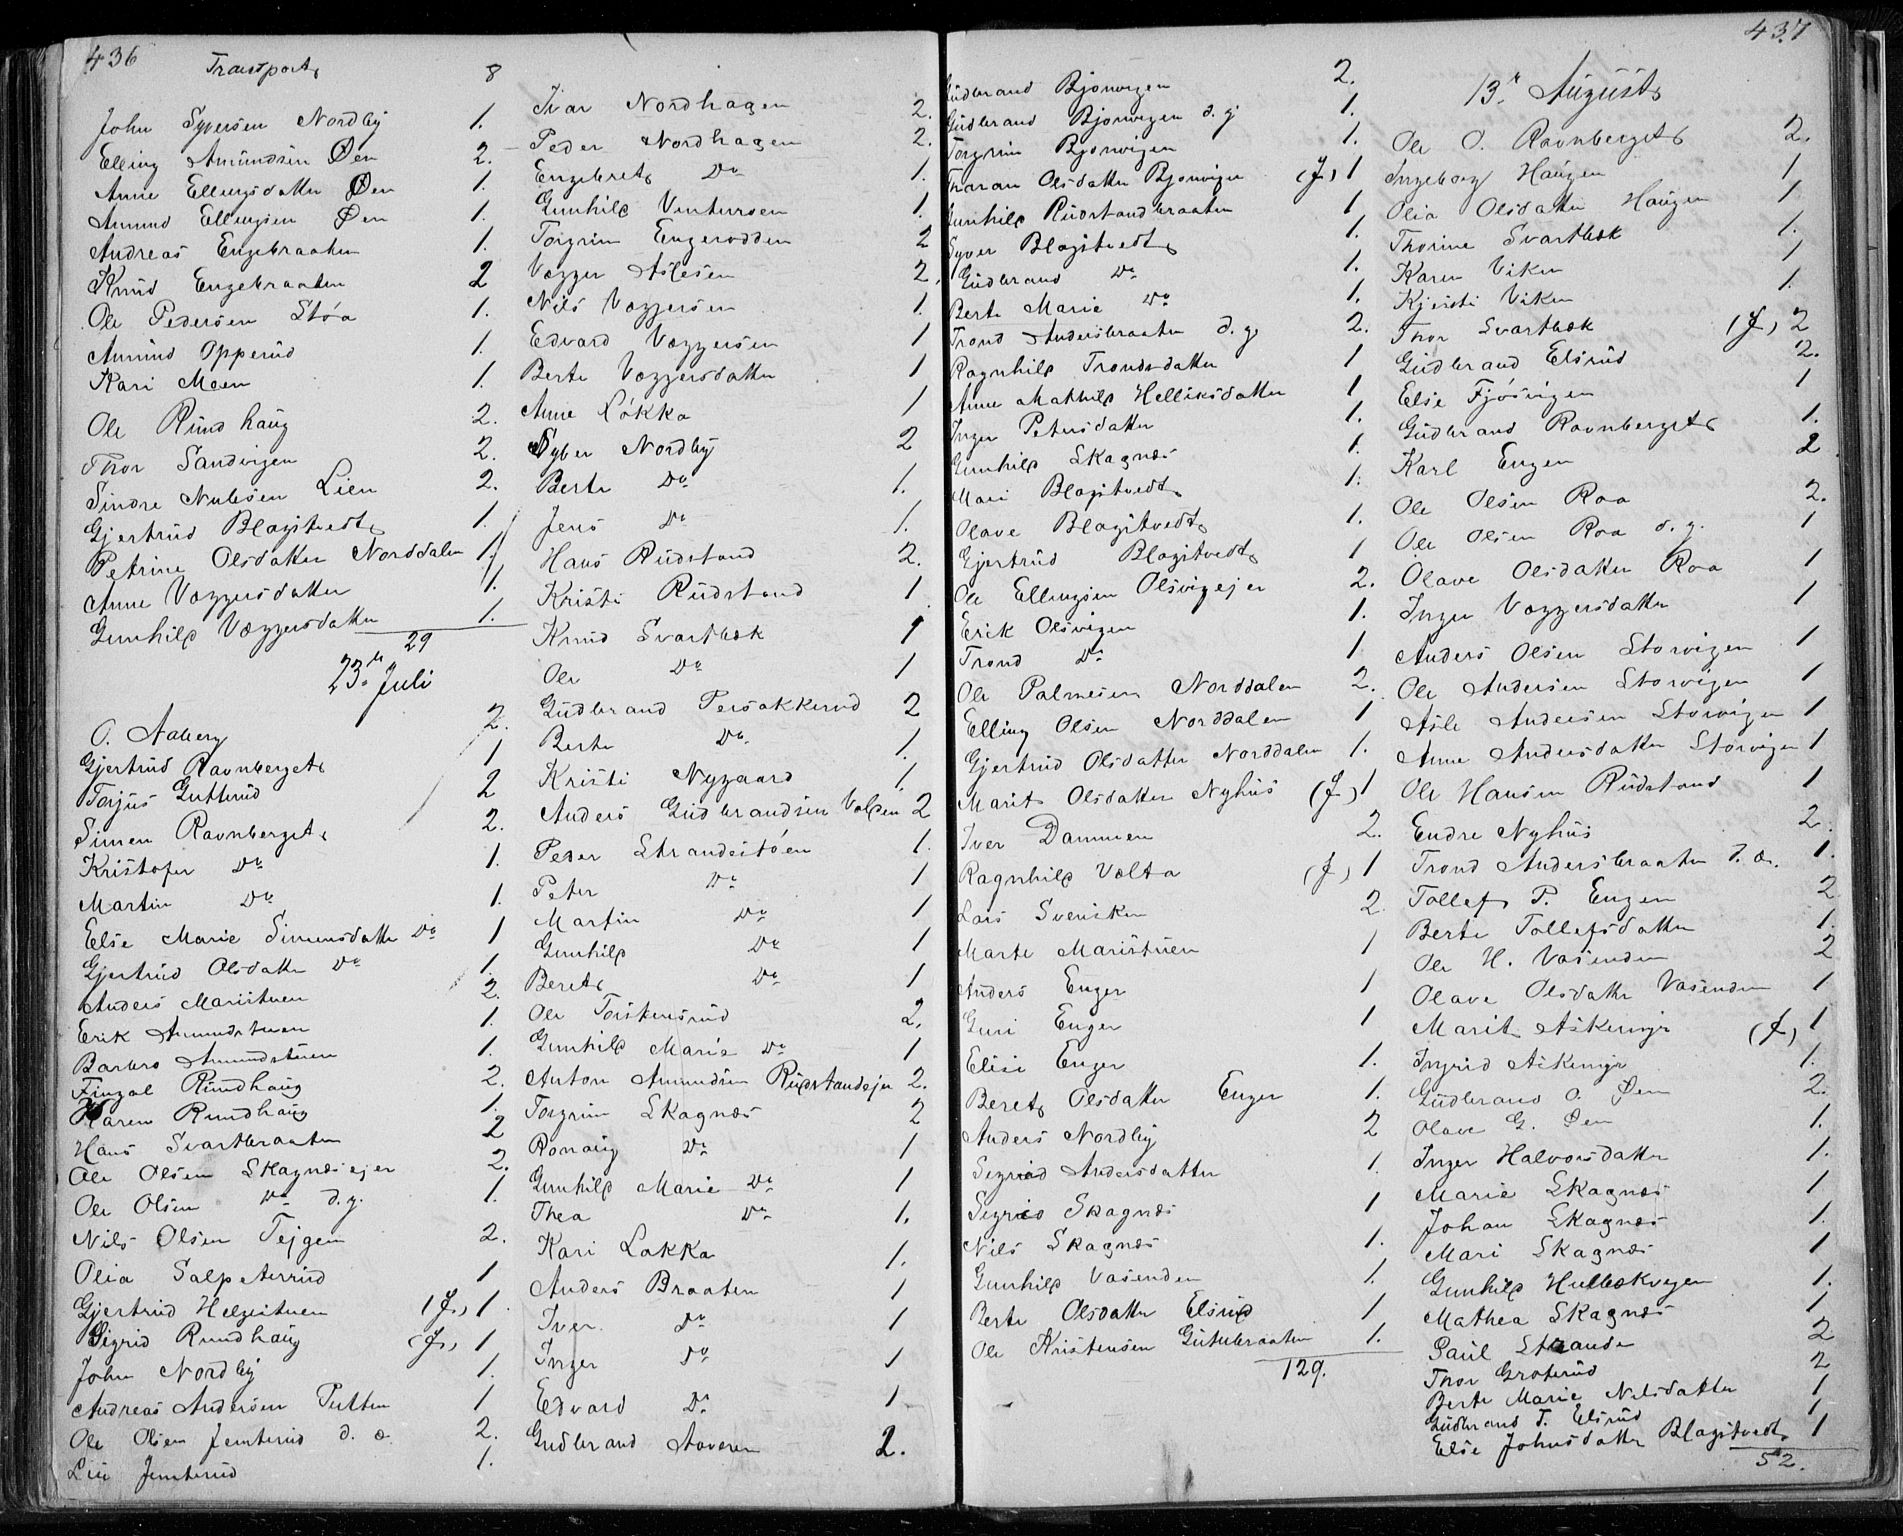 436
Transport 8
John Syversen Nordby 1.
Elling Amundsen Øen 2.
Anne Ellingsdatter Øen 1.
Amund Ellingsen Øen 1.
Andreas Engebraaten 1.
Knud Engebraaten 2
Ole Pedersen Støa 1.
Amund Opperud 1.
Kari Moen 1.
Ole Rundhaug 2.
Thor Sandvigen 2.
Sindre Nubsen Lien 2.
Gjertrud Blagstvedt 1.
Petrine Olsdatter Norddalen 1.
Anne Væggersdatter 1.
Gunhild Væggersdatter 1.
29
23de Juli
O. Aaberg 2.
Gjertrud Ravnberget 1
Torjus Gutterud 2
Simen Ravnberget 2.
Kristofer Do 1.
Martin Do 1.
Else Marie Simensdatter Do 1
Gjertrud Olsdatter Do 1.
Anders Maristuen 2.
Erik Amundstuen 1.
Barbro Amundstuen 1.
Fingal Rundhaug 2.
Karen Rundhaug 1.
Hans Svartbraaten 2
Ole Olsen Skagnæsejer 2.
Ole Olsen Do d.y. 1.
Nils Olsen Tejgen 2.
Olia Salpeterrud 1
Gjertrud Helgeituen (J.) 1.
Sigrid Rundhaug (J.) 1
John Nordby 1.
Andreas Andersen Putten 1
Ole Olsen Jemterud d. æ. 2.
Lui Jemterud 1.
Ivar Nordhagen 2.
Peder Nordhagen 2.
Engebret Do 1.
Gunhild Vintursen 1.
Torgrim Engerodden 2
Vægger Aslesen 2.
Nils Væggersen 1
Edvard Væggersen 1
Berte Væggersdatter 1
Anne Løkka 1
Syver Nordby 2
Berte Do 1.
Jens Do 1.
Hans Rudstand 2.
Kristi Rudstand 1
Knud Svartbæk 1
Ole Do 1
Gudbrand Persakkerud 2
Berte Do. 1.
Kristi Nygaard 1.
Anders Gudbrandsen Volden 2
Peder Strandestøen 1.
Peter Do 1
Martin Do 1
Gunhild Do 1
Beret Do 1
Ole Toiskensrud 2.
Gunhild Marie Do 1
Anton Amundsen Rudstandejer 2.
Torgrim Skagnæs 2
Ronaug Do 1
Gunhild Marie Do 1
Thea Do 1.
Kari Løkka 1.
Anders Braaten 1
Iver Do 1
Inger Do 1
Edvard Do 1
Gudbrand Aaveren 2.
437
Gudbrand Bjonvigen 2.
Gudbrand Bjonvigen d. y 1.
Torgrim Bjonvigen 1.
Thoran Olsdatter Bjonvigen (J.) 1
Gunhild Rudstandbraaten 1
Syver Blagstvedt 1.
Gudbrand Do 1.
Berte Marie Do 1.
Trond Andersbraaten d. y. 2.
Ragnhild Trondsdatter 1
Anne Mathild Helliksdatter 1
Inger Petersdatter 1.
Gunhild Skagnæs 1.
Mari Blagstvedt 1.
Olave Blagstvedt 1.
Gjertrud Blagstvedt 1
Ole Ellingsen Olsvigejer 2.
Erik Olsvigen 1.
Trond Do 1
Ole Palmesen Norddalen 2.
Elling Olsen Norddalen 1
Gjertrud Olsdatter Norddalen 1.
Marit Olsdatter Nyhus (J.) 1
Iver Dammen 2.
Ragnhild Vælta (J.) 1
Lars Svensken 2.
Marte Maristuen 1
Anders Enger 1
Guri Enger 1
Elisi Enger 1.
Beret Olsdatter Enger 1.
Anders Nordby 2
Sigrid Andersdatter 1.
Sigrid Skagnæs 1
Nils Skagnæs 1.
Gunhild Vasenden 1.
Berte Olsdatter Elsrud 1
Ole Kristensen Gutubraaten 1.
129.
13de August
Ole O. Ravnberget 2.
Ingeborg Haugen 1
Olia Olsdatter Haugen 1
Thorine Svartbæk 1.
Karen Viken 1
Kjersti Viken 1.
Thor Svartbæk (J.) 2
Gudbrand Elsrud 2.
Else Fjøsvigen 1
Gudbrand Ravnberget 1.
Karl Engen 2
Ole Olsen Roa 2.
Ole Olsen Roa d. y. 1
Olave Olsdatter Roa 1
Inger Væggersdatter 1
Anders Olsen Storvigen 1
Ole Andersen Storvigen 1
Asle Andersen Storvigen 1
Anne Andersdatter Storvigen 1
Ole Hansen Rudstand 1
Endre Nyhus 2.
Trond Andersbraaten d. æ. 1.
Tollef P. Engen 2
Berte Tollefsdatter 1.
Ole H. Vasenden 2
Olave Olsdatter Vasenden 1
Marit Askemyr (J.) 1
Ingrid Askemyr 1.
Gudbrand O. Øen 2.
Olave G. Øen 1.
Inger Halvorsdatter 1.
Marie Skagnæs 1
Johan Skagnæs 1.
Mari Skagnæs 1
Gunhild Hulbækvegen 1.
Mathea Skagnæs 1
Paul Strande 2
Thor Groterud 2
Berte Marie Nilsdatter 1
Gudbrand T. Elsrud 1
Else Johnsdatter Blagstvedt 1
52.